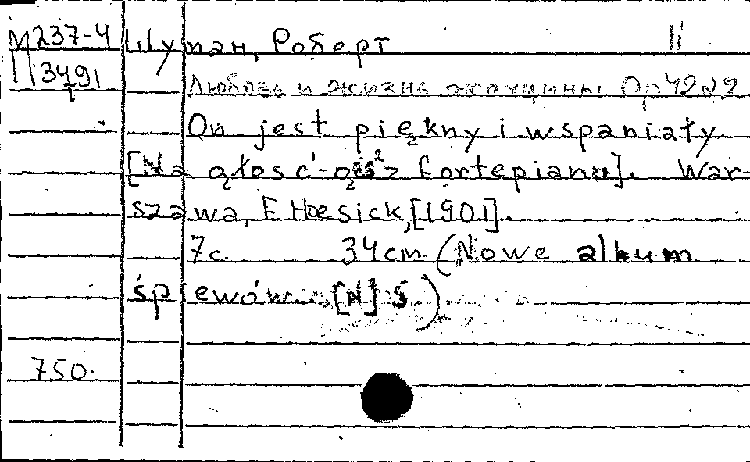 М 237-4 Шуман, Роберт II
3491
Любовь и жизнь женщины Op 42 N 2
On jest piękny i wspaniały
[Na głos z fortepianu]. War-
szawa, F. Hoesick, [1901].
7с. 34cm (Nowe album
śpiewów [N] 5)
750.